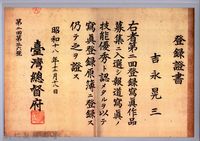 登録證書
吉永晃三
右者第二回登録寫眞作品
募集ニ入選シ報道寫眞
技能優秀ト認メタルヲ以テ
寫眞登録原簿ニ登録ス
仍テ之ヲ證ス
昭和十八年十二月八日
臺灣總督府